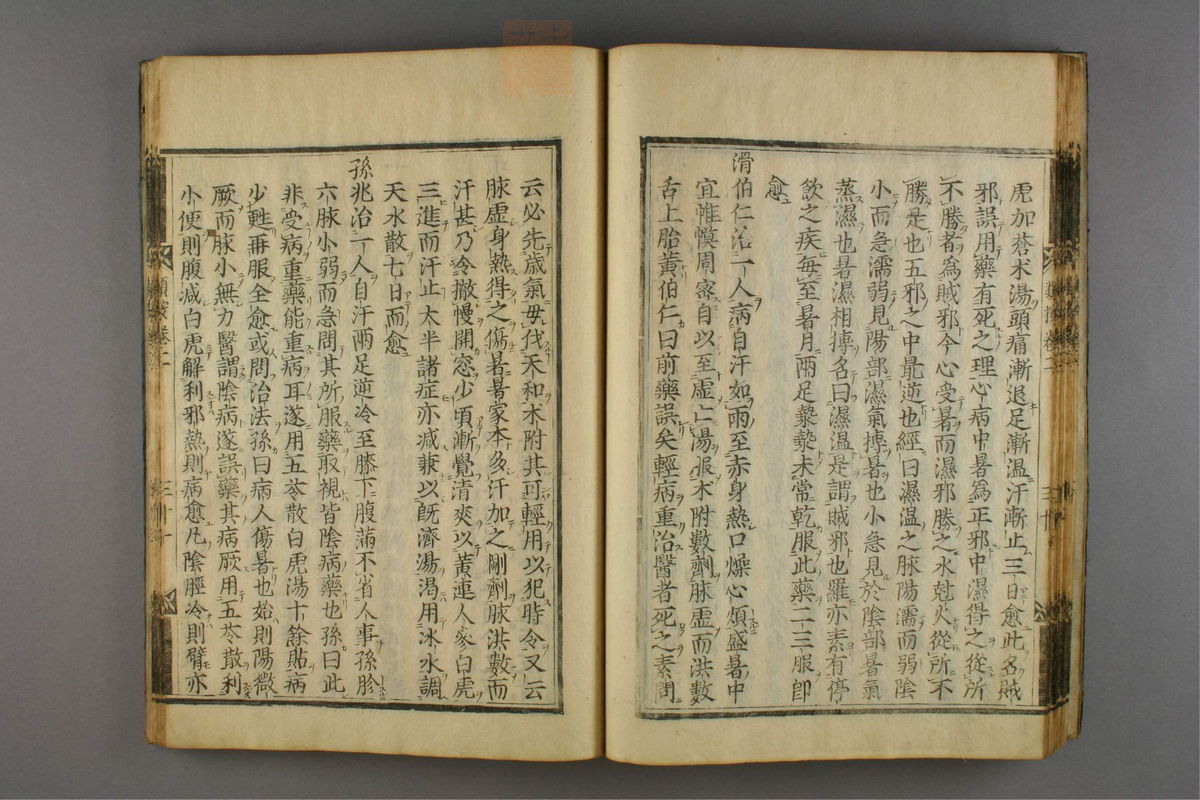 虎加蒼朮湯頭痛漸退足漸温汗漸止三日愈此名賊
邪誤用藥有死之理心病中暑為正邪中濕得之從所
不勝者為賊邪今心受暑而濕邪勝之水尅火從所不
勝是也五邪之中最逆也經曰濕温之脉陽濡而弱陰
小而急濡弱見陽部濕氣搏暑也小急見於陰部暑氣
蒸濕也暑濕相搏名曰濕温是謂賊邪也羅亦素有停
飲之疾每至暑月兩足漐漐未常乾服此藥二三服卽
愈
滑伯仁治一人病自汗如雨至赤身熱口燥心煩盛暑中
宜惟幙周密自以至虚亡湯服朮附數劑脉虚而洪數
舌上胎黃伯仁曰前藥誤矣輕病重治醫者死之素問
云必先歳氣毋伐天和朮附其可輕用以犯時令又云
脉虚身熱得之傷暑暑家本多汗加之剛劑脉洪數而
汗甚乃令撤幔開窓少頃漸覺清爽以黃連人參白虎
三進而汗止太半諸症亦减兼以既濟湯渇用冰水調
天水散七日而愈
孫兆治一人自汗兩足逆冷至膝下腹滿不省人事孫胗
六脉小弱而急問其所服藥取視皆陰病藥也孫曰此
非受病重藥能重病耳遂用五苓散白虎湯十餘貼病
少甦再服全愈或問治法孫曰病人傷暑也始則陽微
厥而脉小無力醫謂陰病遂誤藥其病厥用五苓散利
小便則腹减白虎解利邪熱則病愈凡陰脛冷則臂亦
類按卷二
三十
類按卷二
三十一